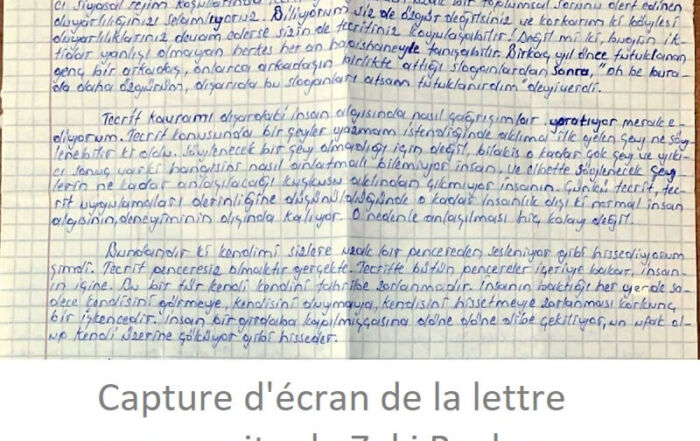 cı siyasal rejim koşullarında toplumsal sorunu dert edinen
duyarlılığınızı selamlıyoruz. Biliyorum siz de özgür değilsiniz ve korkarım ki böylesi
duyarlılıklarınız devam ederse sizin de tecritiniz koyulaşabilir! Değil mi ki, bugün ik-
tidar yanlısı olmayan herkes her an hapishaneyle tanışabilir. Birkaç yıl önce tutuklanan
genç bir arkadaş, onlarca arkadaşın birlikte attığı sloganlardan sonra, "oh be bura-
da daha özgürüm, dışarıda bu sloganları atsam tutuklanırdım" deyiverdi.
Tecrit kavramı dışardaki insan algısında nasıl çağrışımlar yaratıyor merak e-
diyorum. Tecrit konusunda bir şeyler yazmam istendiğinde aklıma ilk gelen şey ne söy-
lenebilir ki oldu. Söylenecek bir şey olmadığı için değil, bilakis o kadar çok şey ve yıkı-
cı sonuç var ki hangisini nasıl anlatmalı bilemiyor insan. Ve elbette söylenecek şey
lerin ne kadar anlaşılacağı kuşkusu aklından çıkmıyor insanın. Çünkü tecrit, tec-
rit uygulamaları derinliğine düşünüldüğünde o kadar insanlık dışı ki normal insan
algısının, deneyiminin dışında kalıyor. O nedenle anlaşılması hiç kolay değil.
Bundandır ki kendimi sizlere uzak bir pencereden sesleniyor gibi hissediyorum
şimdi. Tecrit penceresiz olmaktır gerçekte. Tecritte bütün pencereler içeriye bakar, insan-
ın içine. Bu bir tür kendi kendini tahribe zorlanmadır. İnsanın baktığı her yerde sa-
dece kendisini görmeye, kendisini duymaya, kendisini hissetmeye zorlanması korkunç
bir işkencedir. İnsan bir girdaba kapılmışçasına döne döne dibe çekiliyor, un ufak ol-
up kendi üzerine çöküyor gibi hisseder.
Capture d'écran de la lettre